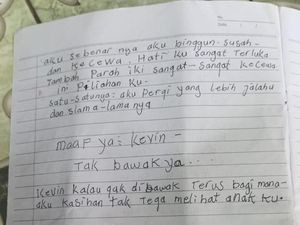 aku sebenar nya aku binggun-susah-
dan kecewa. Hati ku sangat Terluka
Tambah Parah iki sangat-sangat kecewa
ini Pilihan ku.
satu-satunya: aku Pergi yang Lebih Jalahu
dan slama-lama nya
maap ya = Kevin -
Tak bawak ya...
Kevin kalau gak di bawak Terus bagi mana-
aku kasihan tak Tega melihat anak ku.